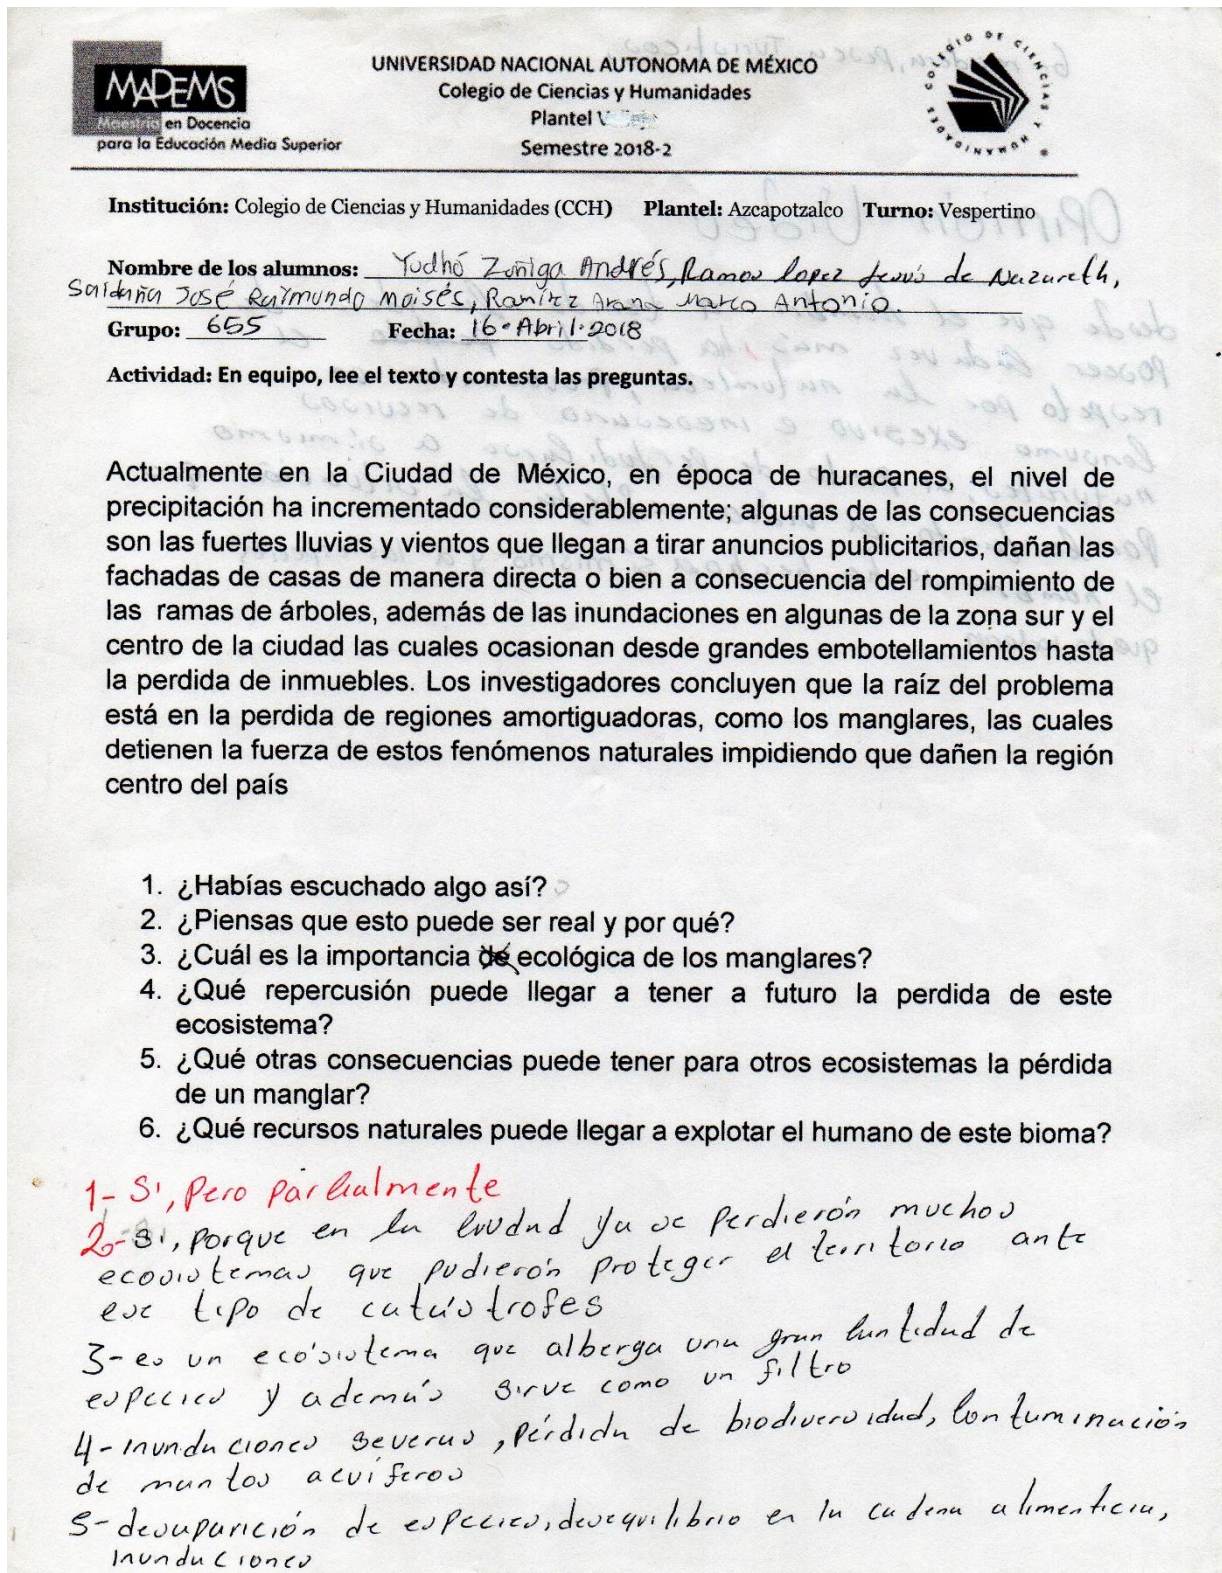 MADEMS
Maestría en Docencia
para la Educación Media Superior
UNIVERSIDAD NACIONAL AUTONOMA DE MÉXICO
Colegio de Ciencias y Humanidades
Plantel
Semestre 2018-2
COLEGIO DE CIENCIAS Y HUMANIDADES
Institución: Colegio de Ciencias y Humanidades (CCH) Plantel: Azcapotzalco Turno: Vespertino
Nombre de los alumnos: Yudhó Zuñiga Andrés, Ramos lopez Jesús de Nazareth,
Saldaña José Raymundo Moisés, Ramírez Arana Marco Antonio.
Grupo: 655 Fecha: 16-Abril-2018
Actividad: En equipo, lee el texto y contesta las preguntas.
Actualmente en la Ciudad de México, en época de huracanes, el nivel de
precipitación ha incrementado considerablemente; algunas de las consecuencias
son las fuertes lluvias y vientos que llegan a tirar anuncios publicitarios, dañan las
fachadas de casas de manera directa o bien a consecuencia del rompimiento de
las ramas de árboles, además de las inundaciones en algunas de la zona sur y el
centro de la ciudad las cuales ocasionan desde grandes embotellamientos hasta
la perdida de inmuebles. Los investigadores concluyen que la raíz del problema
está en la perdida de regiones amortiguadoras, como los manglares, las cuales
detienen la fuerza de estos fenómenos naturales impidiendo que dañen la región
centro del país
1. ¿Habías escuchado algo así?
2. ¿Piensas que esto puede ser real y por qué?
3. ¿Cuál es la importancia de ecológica de los manglares?
4. ¿Qué repercusión puede llegar a tener a futuro la perdida de este
ecosistema?
5. ¿Qué otras consecuencias puede tener para otros ecosistemas la pérdida
de un manglar?
6. ¿Qué recursos naturales puede llegar a explotar el humano de este bioma?
1- Si, Pero parcialmente
2- Si, porque en la ciudad ya se perdierón muchos
ecosistemas que pudierón proteger el territorio ante
ese tipo de catástrofes
3- es un ecósistema que alberga una gran cantidad de
especies y además sirve como un filtro
4- inundaciones severas, pérdida de biodiversidad, contaminación
de mantos acuíferos
5- desaparición de especies, desequilibrio en la cadena alimenticia,
inundaciones